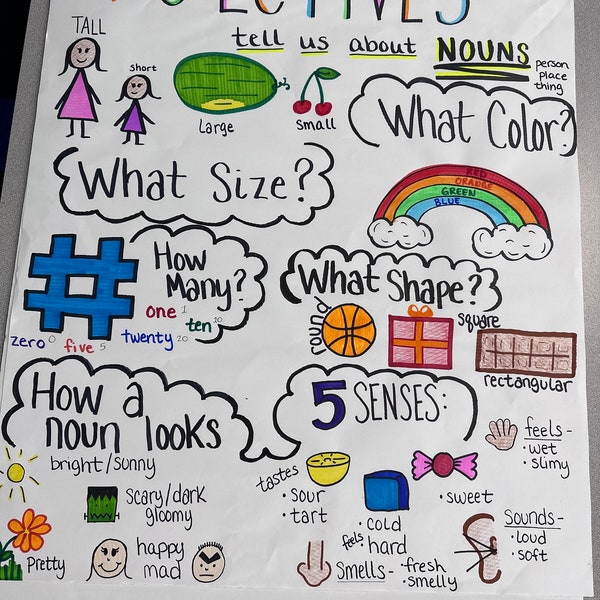 tell us about NOUNS
person
place
thing
TALL
short
Large
Small
What Color?
What Size?
RED
ORANGE
GREEN
BLUE
How
Many?
one 1
ten 10
zero 0 five 5 twenty 20
What Shape?
round
square
rectangular
How a
noun looks
bright/sunny
Scary/dark
gloomy
Pretty
happy
mad
5 SENSES:
tastes
• sour
• tart
• sweet
• cold
feels • hard
feels-
• wet
• slimy
Sounds-
• loud
• soft
Smells- • fresh
• smelly